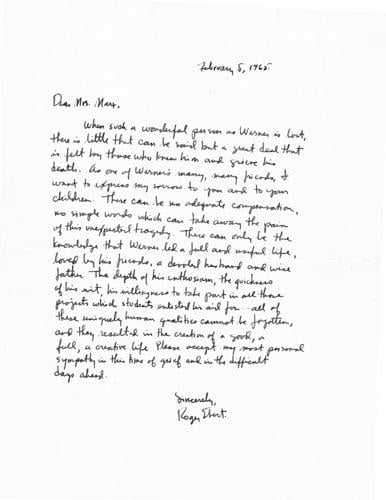 February 5, 1965
Dear Mrs. Marx,
When such a wonderful person as Werner is lost,
there is little that can be said but a great deal that
is felt by those who knew him and grieve his
death. As one of Werner's many, many friends, I
want to express my sorrow to you and to your
children. There can be no adequate compensation,
no simple words which can take away the pain
of this unexpected tragedy. There can only be the
knowledge that Werner led a full and useful life,
loved by his friends, a devoted husband and wise
father. The depth of his enthusiasm, the quickness
of his wit, his willingness to take part in all those
projects which students enlisted his aid for -- all of
these uniquely human qualities cannot be forgotten,
and they resulted in the creation of a good, a
full, a creative life. Please accept my most personal
sympathy in this time of grief and in the difficult
days ahead.
Sincerely,
Roger Ebert.